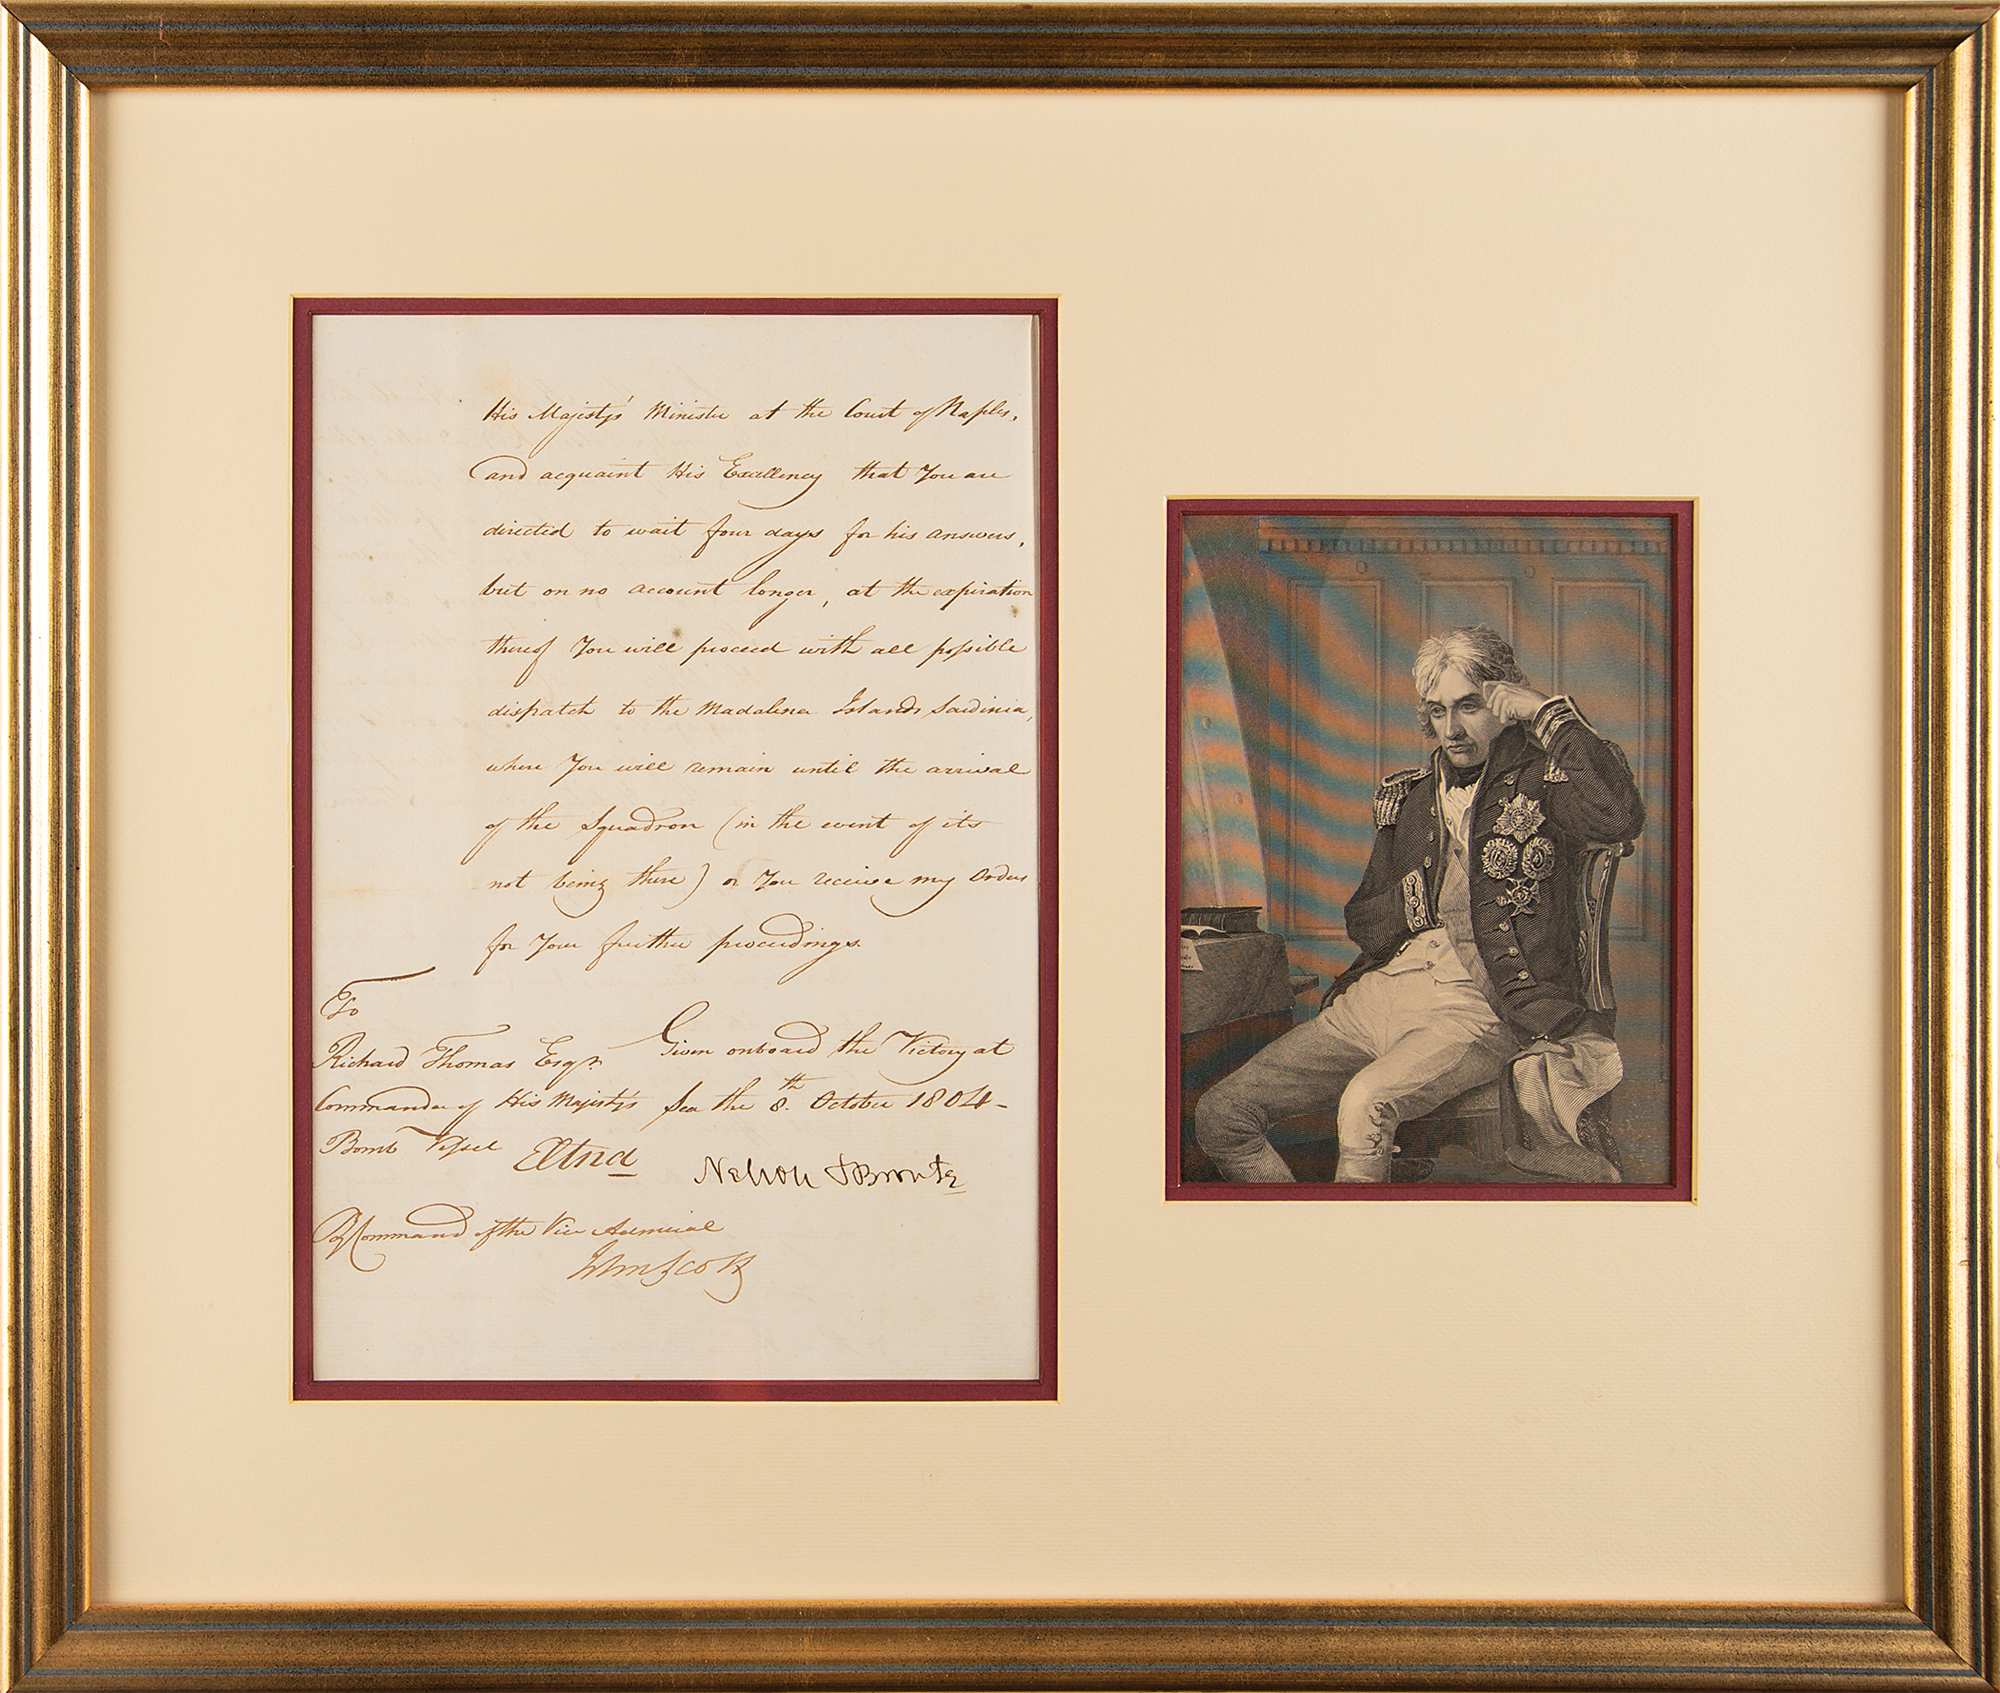 His Majesty's Minister at the Court of Naples,
and acquaint His Excellency that You are
directed to wait four days for his answers,
but on no account longer, at the expiration
thereof You will proceed with all possible
dispatch to the Madalena Islands Sardinia,
where You will remain until the arrival
of the Squadron (in the event of its
not being there) or You receive my Orders
for Your further proceedings.
To
Richard Thomas Esqr.
Commander of His Majesty's
Bomb Vessel Ætna
Given onboard the Victory at
Sea the 8th. October 1804-
Nelson & Bronte
By Command of the Vice Admiral
Jn Scott